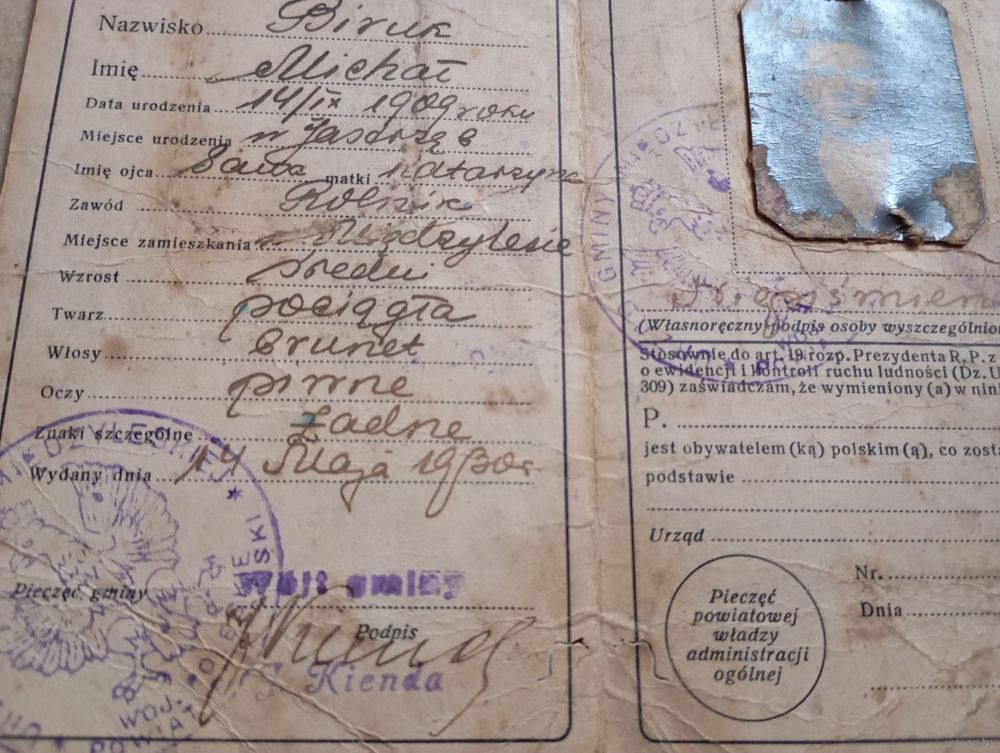 Nazwisko Biruk
Imię Michał
Data urodzenia 14/IX 1909 roku
Miejsce urodzenia w Jastrząb
Imię ojca Sawa matki Katarzyna
Zawód Rolnik
Miejsce zamieszkania w Międzylesie
Wzrost średni
Twarz pociągła
Włosy brunet
Oczy piwne
Znaki szczególne żadne
Wydany dnia 14 Maja 1930 r.
Pieczęć gminy
Wójt gminy
Podpis
Kienda
(Własnoręczny podpis osoby wyszczególnion
Stosownie do art. 19 rozp. Prezydenta R. P. z
o ewidencji i kontroli ruchu ludności (Dz. U
309) zaświadczam, że wymieniony (a) w nin
P.
jest obywatelem (ką) polskim (ą), co zosta
podstawie
Urząd
Nr.
Dnia
Pieczęć
powiatowej
władzy
administracji
ogólnej